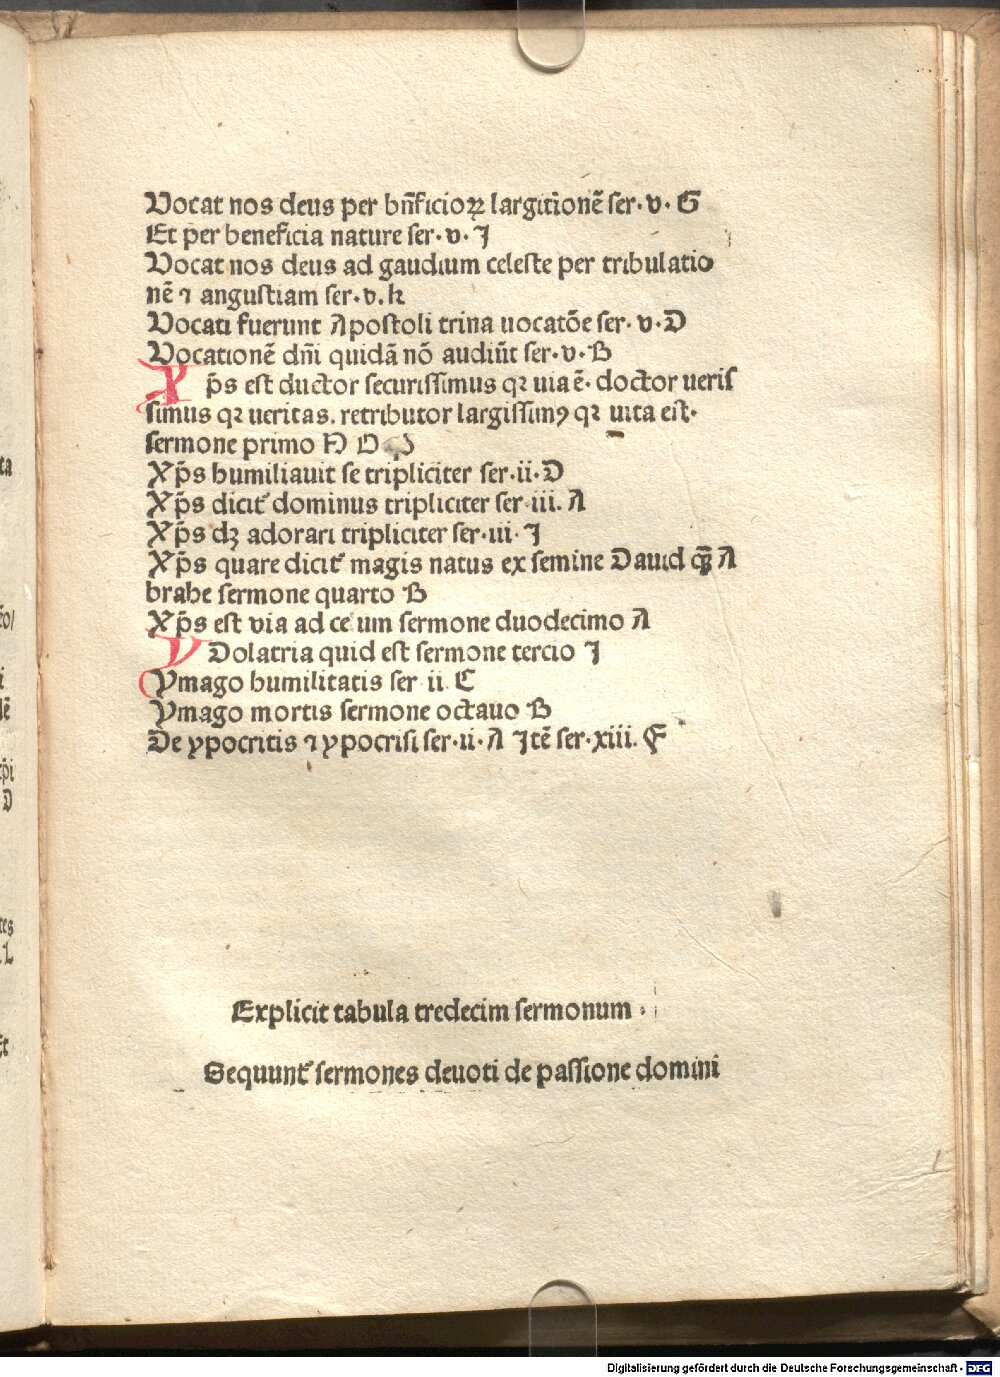 Vocat nos deus per bn̄ficioꝝ largitionē ser. v. G
Et per beneficia nature ser. v. I
Vocat nos deus ad gaudium celeste per tribulatio
nē ⁊ angustiam ser. v. k
Vocati fuerunt Apostoli trina uocatōe ser. v. D
Vocationē dn̄i quidā nō audiūt ser. v. B
Xp̄s est ductor securissimus qꝛ uia ē. doctor ueris
simus qꝛ ueritas. retributor largissimꝰ qꝛ uita est.
sermone primo N O
Xp̄s humiliauit se tripliciter ser. ii. D
Xp̄s dicit᷑ dominus tripliciter ser. iii. A
Xp̄s dꝫ adorari tripliciter ser. iii. I
Xp̄s quare dicit᷑ magis natus ex semine Dauid qꝫ̄ A
brahe sermone quarto B
Xp̄s est via ad ce um sermone duodecimo A
YDolatria quid est sermone tercio I
Ymago humilitatis ser. ii. C
Ymago mortis sermone octauo B
De ypocritis ⁊ ypocrisi ser. ii. A Itē ser. xiii. F
Explicit tabula tredecim sermonum.
Sequunt᷑ sermones deuoti de passione domini
Digitalisierung gefördert durch die Deutsche Forschungsgemeinschaft - DFG